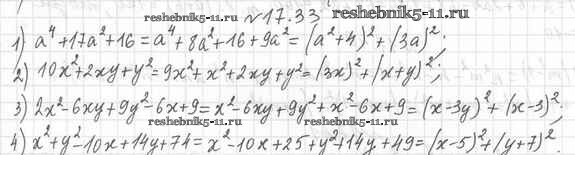 reshebnik5-11.ru №17.33 reshebnik5-11.ru
1) a⁴+17a²+16=a⁴+8a²+16+9a²=(a²+4)²+(3a)²;
reshebnik5-11.ru
2) 10x²+2xy+y²=9x²+x²+2xy+y²=(3x)²+(x+y)²;
3) 2x²-6xy+9y²-6x+9=x²-6xy+9y²+x²-6x+9=(x-3y)²+(x-3)²;
reshebnik5-11.ru reshebnik5-11.ru
4) x²+y²-10x+14y+74=x²-10x+25+y²+14y+49=(x-5)²+(y+7)².
reshebnik5-11.ru